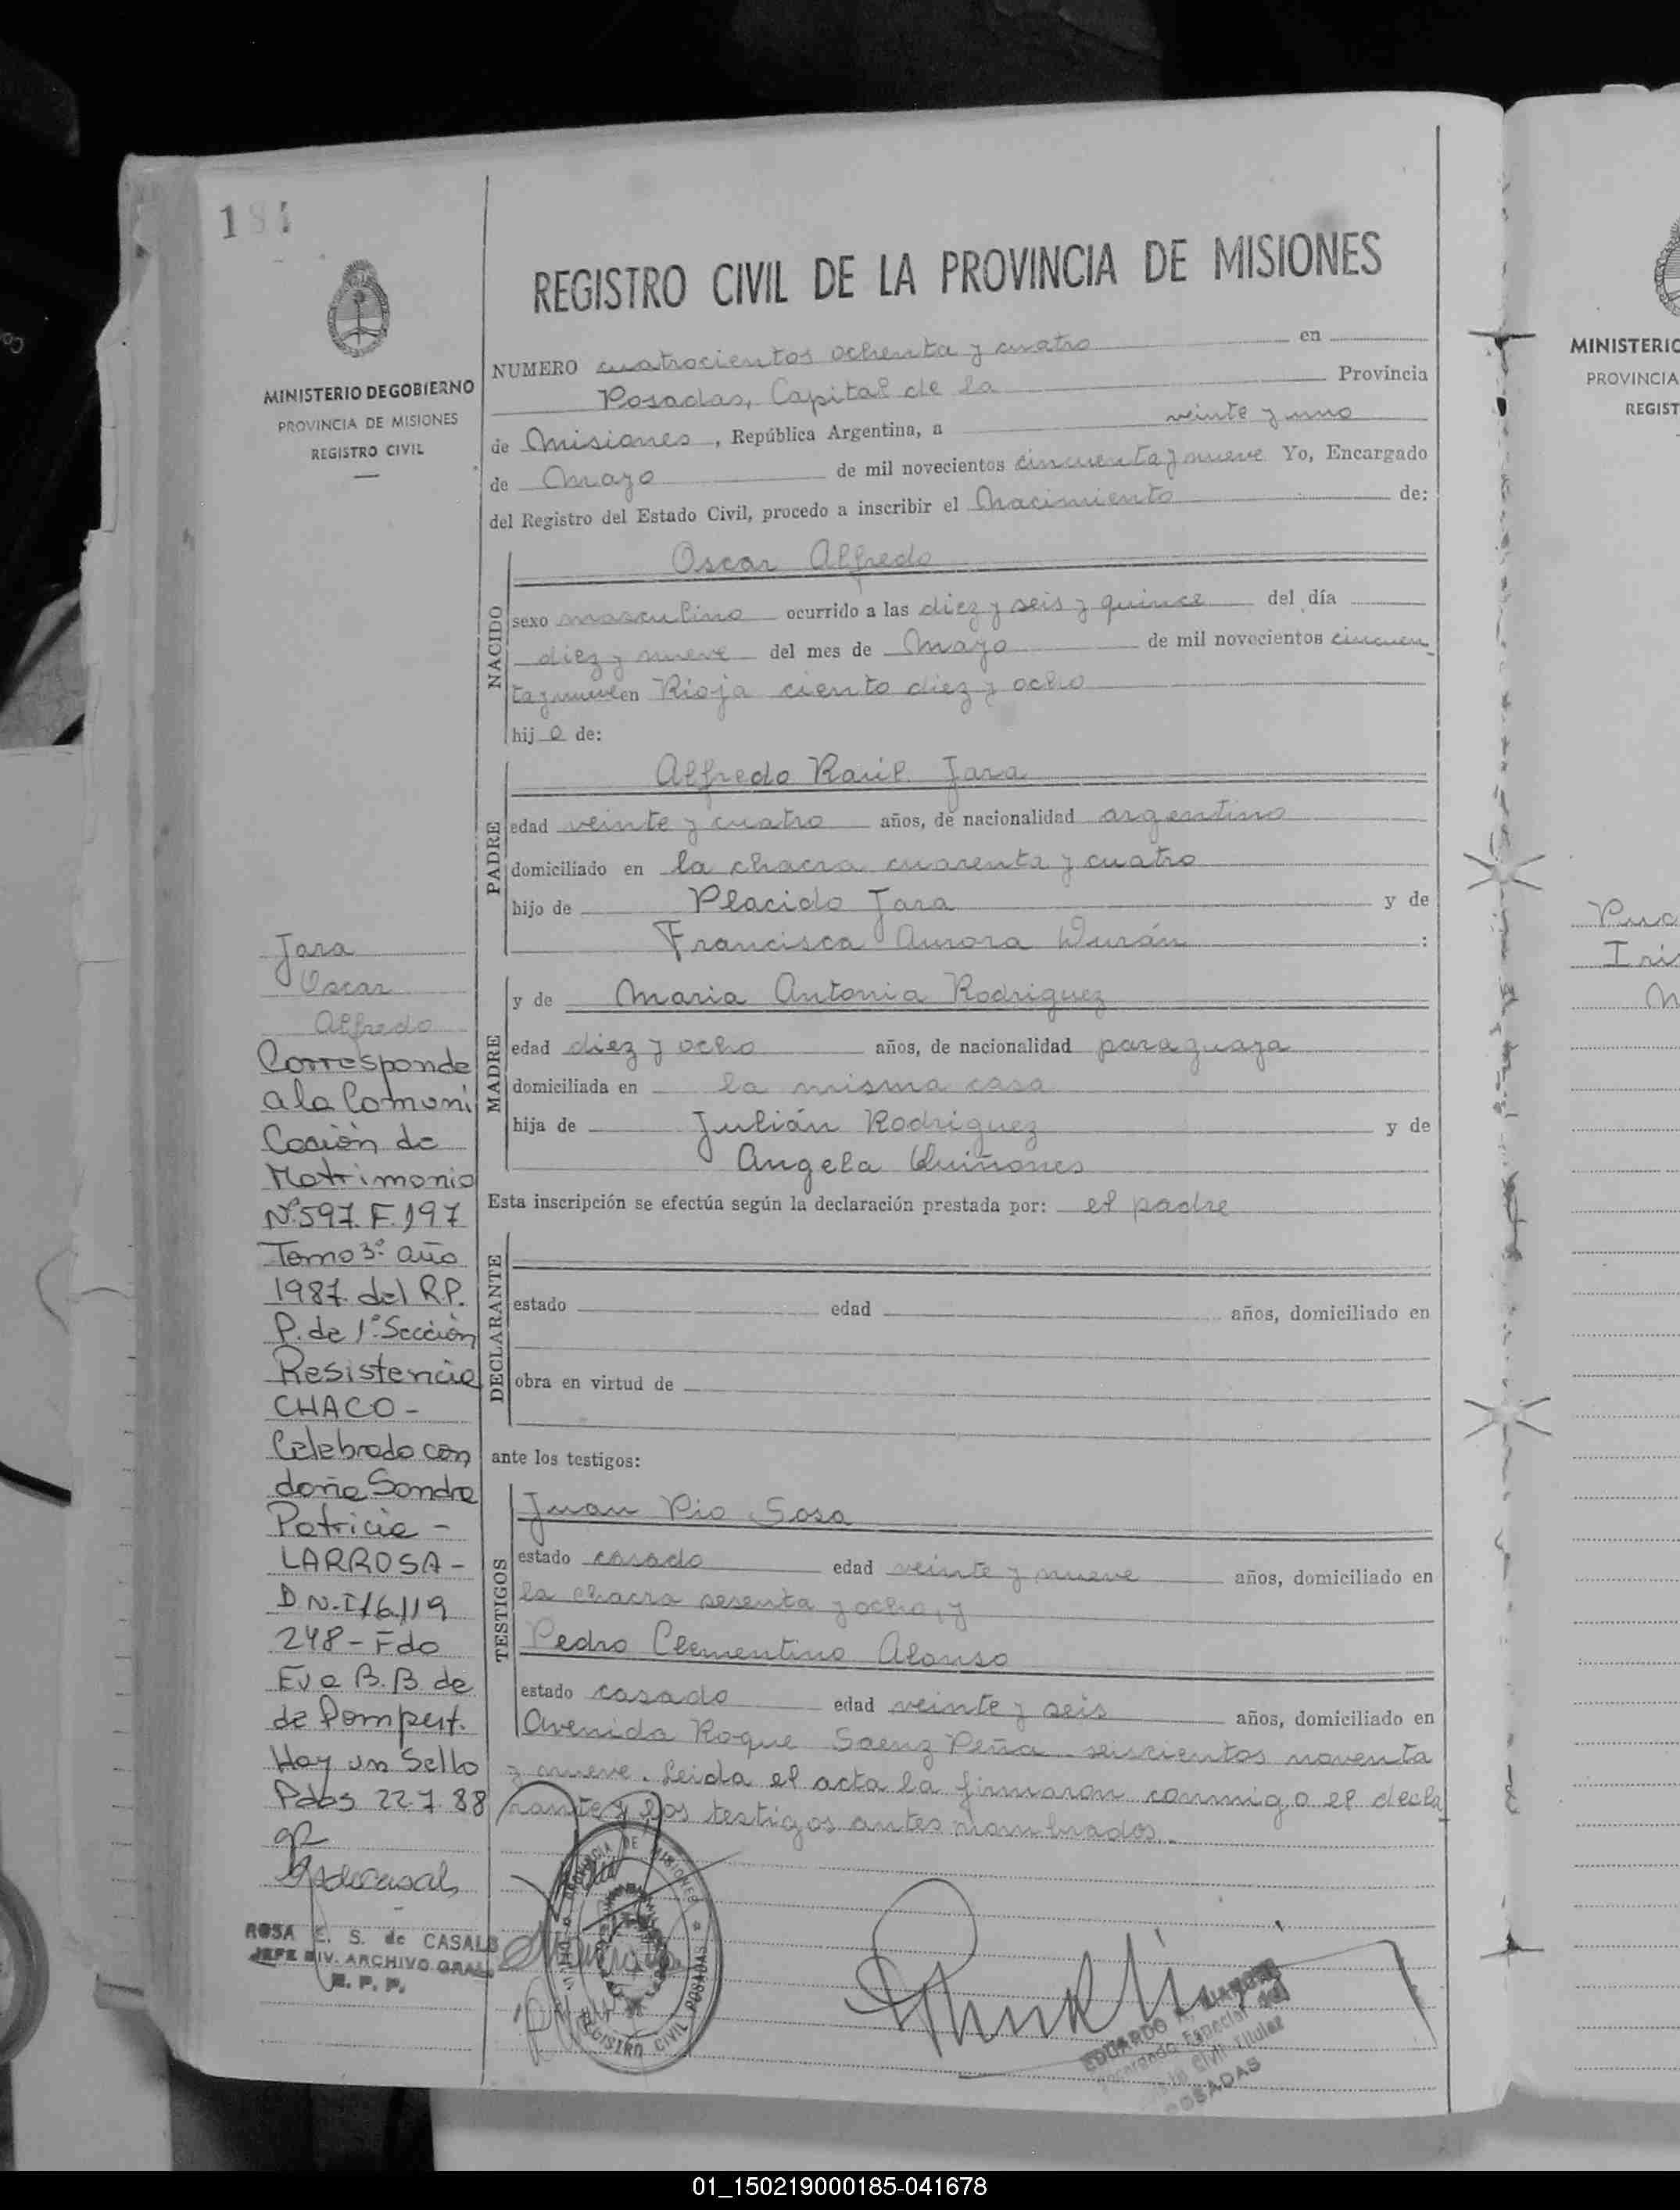 184
MINISTERIO DE GOBIERNO
PROVINCIA DE MISIONES
REGISTRO CIVIL
REGISTRO CIVIL DE LA PROVINCIA DE MISIONES
NUMERO cuatrocientos ochenta y cuatro en
Posadas, Capital de la Provincia
de Misiones, República Argentina, a veinte y uno
de Mayo de mil novecientos cincuenta y nueve Yo, Encargado
del Registro del Estado Civil, procedo a inscribir el Nacimiento de:
NACIDO
Oscar Alfredo
sexo masculino ocurrido a las diez y seis y quince del día
diez y nueve del mes de Mayo de mil novecientos cincuen
ta y nueve en Rioja ciento diez y ocho
hij o de:
PADRE
Alfredo Raúl Jara
edad veinte y cuatro años, de nacionalidad argentino
domiciliado en la chacra cuarenta y cuatro
hijo de Placido Jara y de
Francisca Aurora Durán :
MADRE
y de Maria Antonia Rodriguez
edad diez y ocho años, de nacionalidad paraguaya
domiciliada en la misma casa
hija de Julián Rodriguez y de
Angela Quiñones
Esta inscripción se efectúa según la declaración prestada por: el padre
DECLARANTE
estado edad años, domiciliado en
obra en virtud de
ante los testigos:
TESTIGOS
Juan Pio Sosa
estado casado edad veinte y nueve años, domiciliado en
la chacra sesenta y ocho, y
Pedro Clementino Alonso
estado casado edad veinte y seis años, domiciliado en
Avenida Roque Saenz Peña seiscientos noventa
y nueve. Leida el acta la firmaron conmigo el decla
rante y los testigos antes nombrados.
Jara
Oscar
Alfredo
Corresponde
a la Comuni
cación de
Matrimonio
Nº597. F.197
Tomo 3º año
1987. del R.P.
P. de 1º Sección
Resistencia
CHACO -
Celebrado con
doña Sandra
Patricia -
LARROSA -
D.N.I/6119
248 - Fdo
Eva B.B. de
de Pompert.
Hay un Sello
Pdas 22.7.88
ROSA E. S. de CASALS
JEFE DIV. ARCHIVO GRAL.
R. P. P.
PROVINCIA DE MISIONES
REGISTRO CIVIL
POSADAS
EDUARDO
Encargado Especial del
Civil Titular
POSADAS
MINISTERIO
PROVINCIA
REGIST
01_150219000185-041678